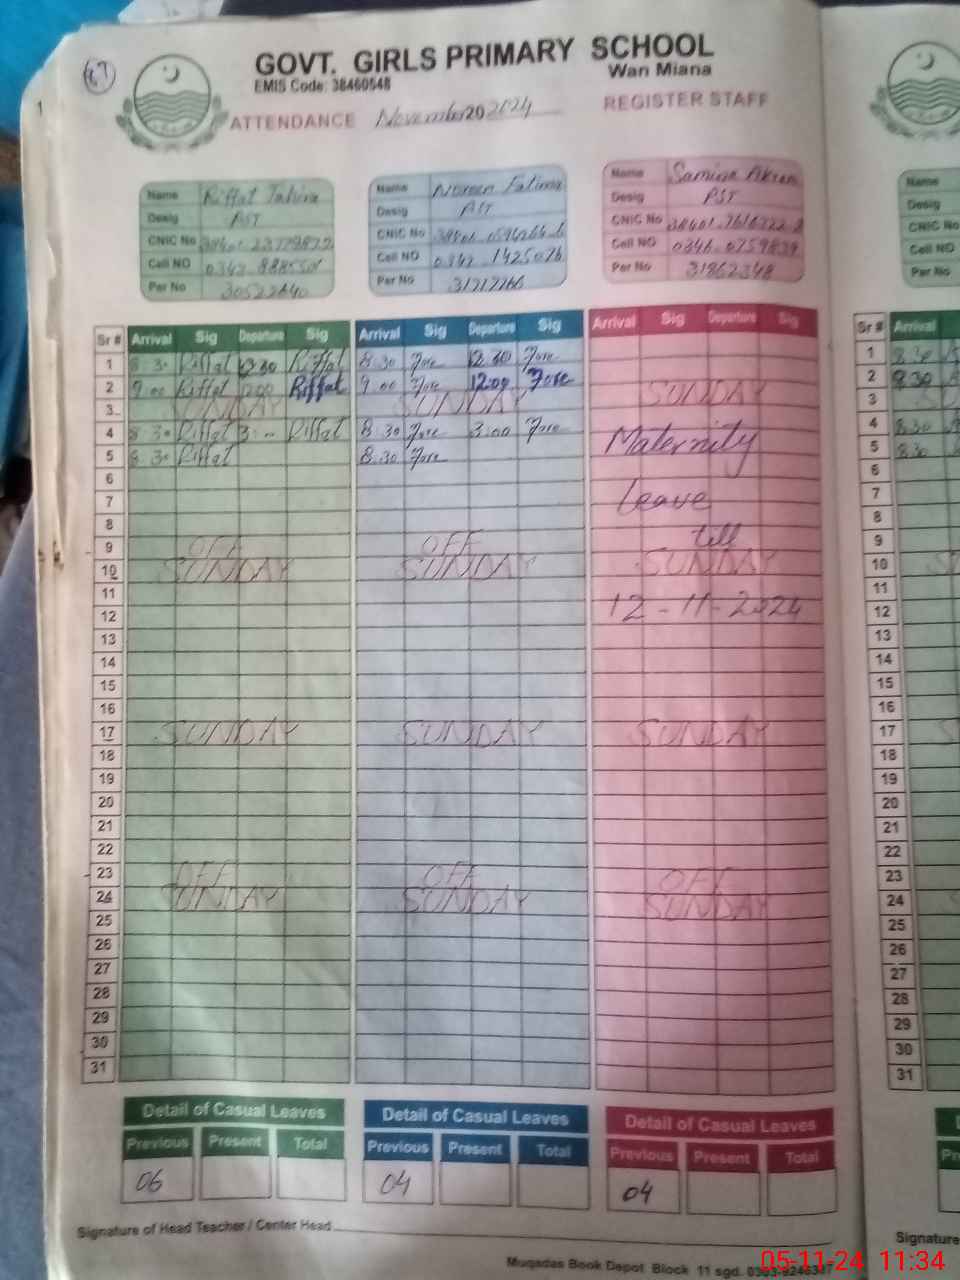 67
GOVT. GIRLS PRIMARY SCHOOL
Wan Miana
EMIS Code: 38460548
ATTENDANCE November 20 2024 REGISTER STAFF
Name Riffat Tahira
Desig PST
CNIC No
Cell NO
Per No 30522840
Name Noreen Fatima
Desig PST
CNIC No
Cell NO 0342 1425076
Per No 31217266
Name Samina Akram
Desig PST
CNIC No
Cell NO 0346 0759839
Per No 31862348
Sr # Arrival Sig Departure Sig Arrival Sig Departure Sig Arrival Sig Departure Sig Sr # Arrival
1 8 30 Riffat 12 30 Riffat 8 30 12 30 1 8 30
2 9 00 Riffat 12 00 Riffat 9 00 12:00 SUNDAY 2 8 30
3 SUNDAY SUNDAY 3
4 8 30 Riffat 3 Riffat 8 30 3:00 Maternity 4 8 30
5 8 30 Riffat 8.30 5 8 30
6 6
7 Leave 7
8 8
9 OFF OFF till 9
10 SUNDAY SUNDAY SUNDAY 10
11 11
12 12-11-2024 12
13 13
14 14
15 15
16 16
17 SUNDAY SUNDAY SUNDAY 17
18 18
19 19
20 20
21 21
22 22
23 OFF OFF OFF 23
24 SUNDAY SUNDAY SUNDAY 24
25 25
26 26
27 27
28 28
29 29
30 30
31 31
Detail of Casual Leaves Detail of Casual Leaves Detail of Casual Leaves
Previous Present Total Previous Present Total Previous Present Total
06 04 04
Signature of Head Teacher / Center Head Signature
Muqadas Book Depot Block 11 sgd.
05-11-24 11:34